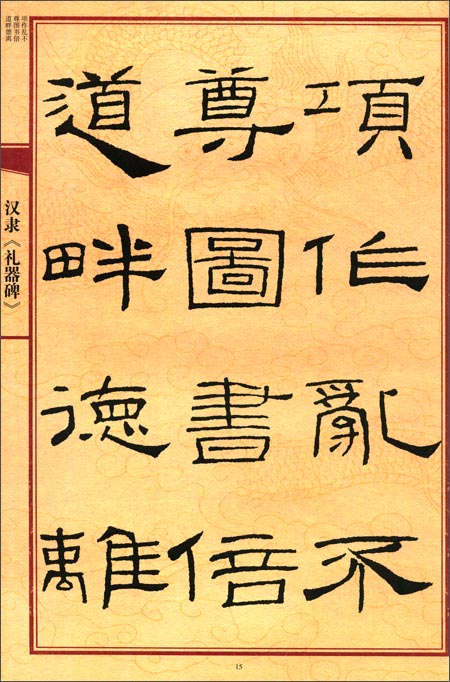 項作亂不
尊圖書倍
道畔德離
项作乱不
尊图书倍
道畔德离
汉隶《礼器碑》
15